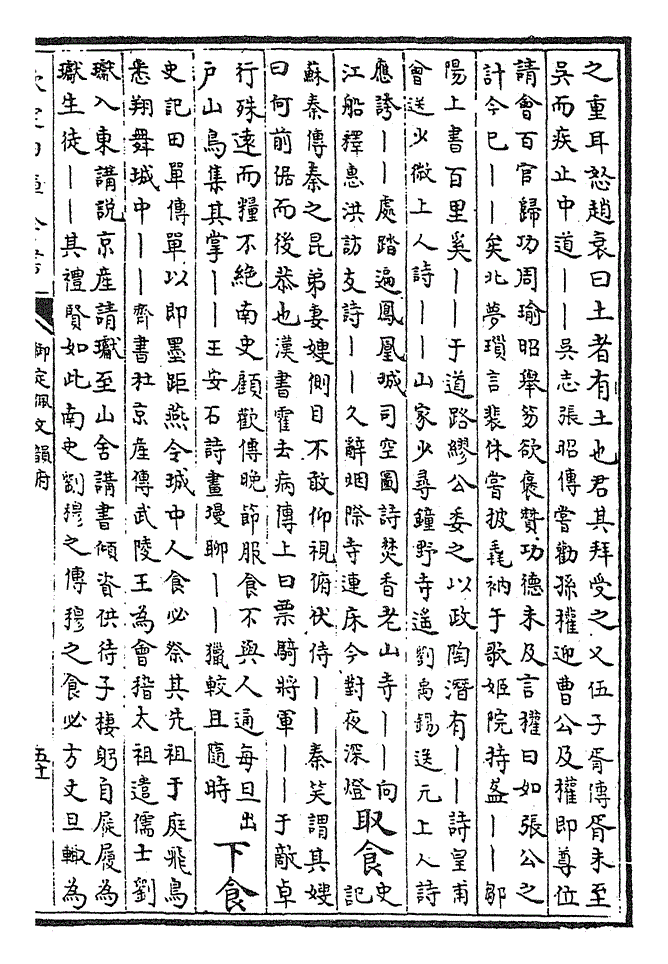 之重耳怒趙衰曰土者有土也君其拜受之又伍子胥傳胥未至
吳而疾止中道——吳志張昭傳嘗勸孫權迎曹公及權即尊位
請會百官歸功周瑜昭舉笏欲褒贊功德未及言權曰如張公之
計今已——矣北夢瑣言裴休嘗披毳衲于歌姬院持盋——鄒
陽上書百里奚——于道路繆公委之以政陶潛有——詩皇甫
會送少微上人詩——山家少尋鐘野寺遥劉禹錫送元上人詩
應誇——處踏遍鳳凰城司空圖詩焚香老山寺——向
江船釋惠洪訪友詩——久辭烟際寺連床今對夜深燈
取食
史記
蘇秦傳秦之昆弟妻嫂側目不敢仰視俯伏侍——秦笑謂其嫂
曰何前倨而後恭也漢書霍去病傳上曰票騎將軍——于敵卓
行殊遠而糧不絶南史顧歡傳晚節服食不與人通每旦出
户山鳥集其掌——王安石詩畫墁聊——獵較且隨時
下食
史記田單傳單以即墨距燕令城中人食必祭其先祖于庭飛鳥
悉翔舞城中——齊書杜京產傳武陵王為會稽太祖遣儒士劉
瓛入東講説京産請瓛至山舍講書傾資供待子棲躬自屣履為
瓛生徒——其禮賢如此南史劉穆之傳穆之食必方丈旦輒為
御定佩文韻府